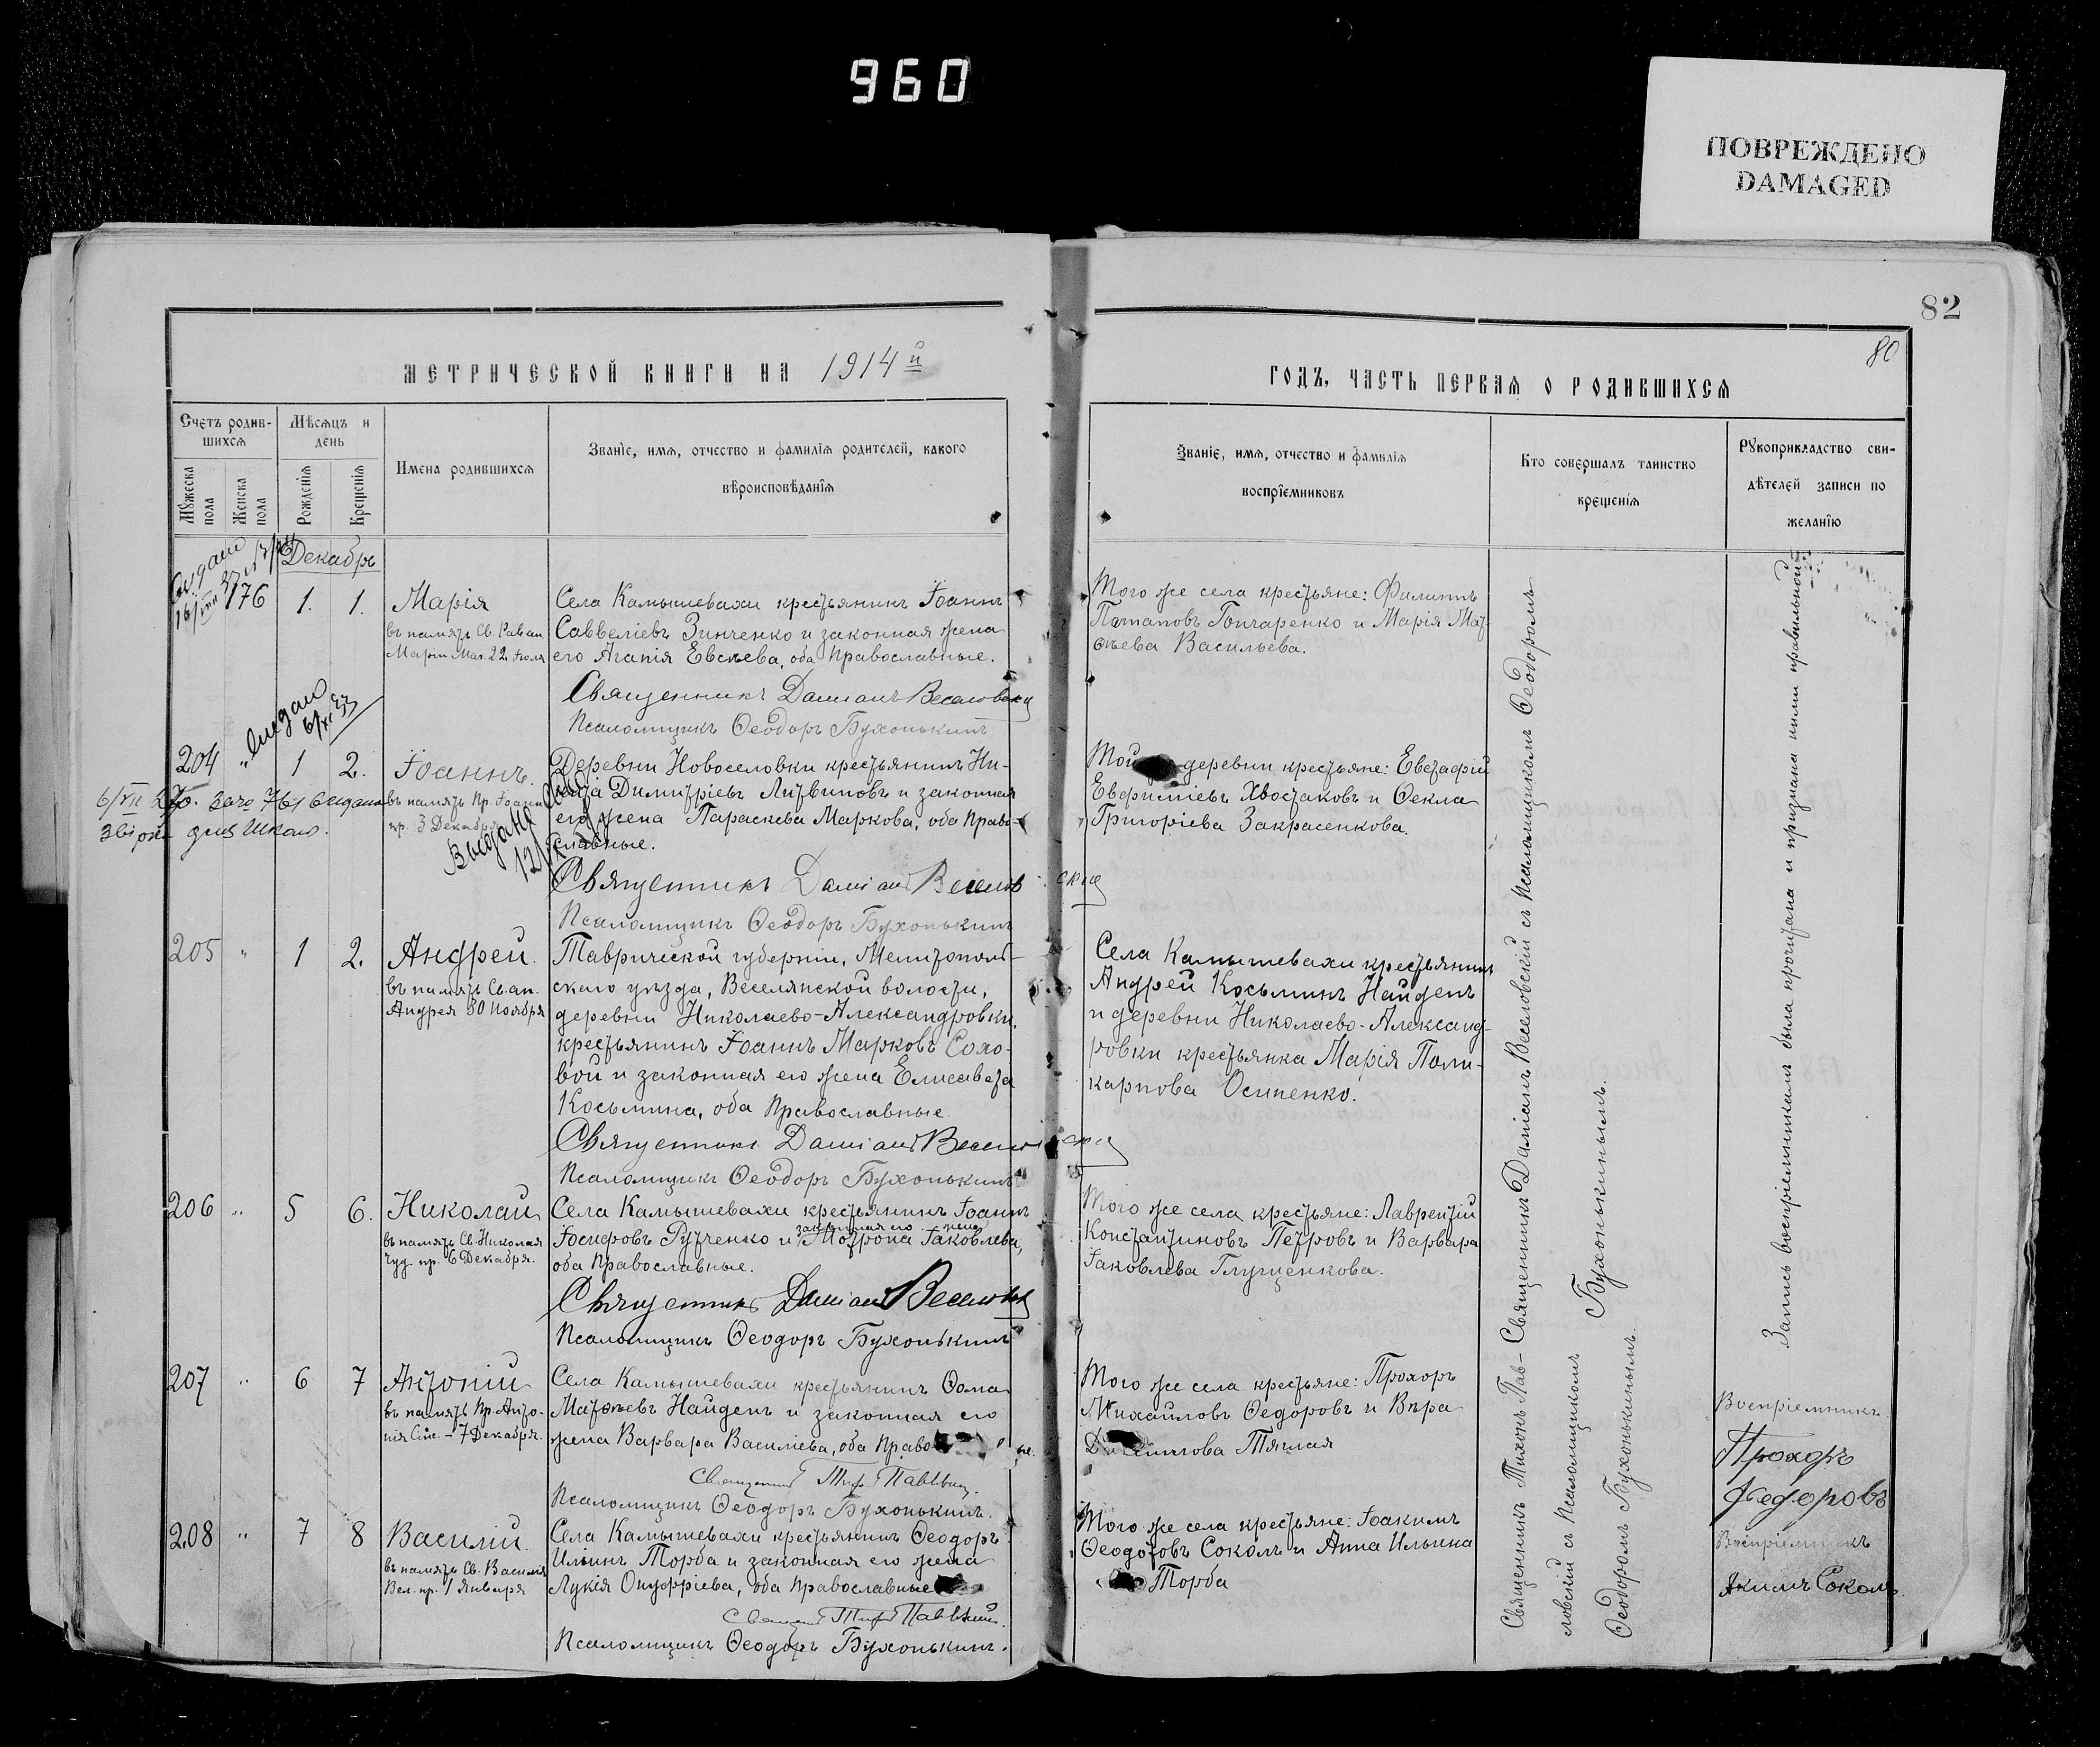 960
ПОВРЕЖДЕНО
DAMAGED
82
80
МЕТРИЧЕСКОЙ КНИГИ НА 1914й
Счетъ родив-
шихся
Мѣсяцъ и
день
Мужеска
пола
Женска
пола
Рожденія
Крещенія
Имена родившихся
Званіе, имя, отчество и фамилія родителей, какого
вѣроисповѣданія
Декабрь
176 1. 1. Марія
въ память Св. Равноап.
Маріи Маг. 22 Іюля
Села Камышевахи крестьянинъ Іоаннъ
Саввеліевъ Зинченко и законная жена
его Агапія Евсѣева, оба православные.
Священникъ Даміанъ Веселовскій
Псаломщикъ Ѳеодоръ Бухонькинъ
204 " 1 2. Іоаннъ.
въ память Пр. Іоанна
пр. 3 Декабря
Деревни Новоселовки крестьянинъ Ни-
Димитріевъ Литвиновъ и законная
его жена Параскева Маркова, оба право-
славные.
Выдано
Священникъ Даміанъ Веселовскій
Псаломщикъ Ѳеодоръ Бухонькинъ
205 " 1 2. Андрей.
въ память Св. ап.
Андрея 30 Ноября
Таврической губерніи, Мелитополь-
скаго уѣзда, Веселянской волости,
деревни Николаево-Александровки,
крестьянинъ Іоаннъ Марковъ Соло-
вой и законная его жена Елисавета
Косьмина, оба православные.
Священникъ Даміанъ Веселовскій
Псаломщикъ Ѳеодоръ Бухонькинъ
206 " 5 6. Николай
въ память Св. Николая
Чуд. пр. 6 Декабря.
Села Камышевахи крестьянинъ Іоаннъ
Іосифовъ Рутченко и законная его жена Мотрона Іаковлева,
оба православные.
Священникъ Даміанъ Веселовскій
Псаломщикъ Ѳеодоръ Бухонькинъ
207 " 6 7 Антоній
въ память Пр. Анто-
нія Сій. - 7 Декабря.
Села Камышевахи крестьянинъ Ѳома
Матѳѣевъ Найденъ и законная его
жена Варвара Василіева, оба право
Псаломщикъ Ѳеодоръ Бухонькинъ.
208 " 7 8 Василій.
въ память Св. Василія
Вел. пр. 1 Января
Села Камышевахи крестьянинъ Ѳеодоръ
Ильинъ Торба и законная его жена
Лукія Онуфріева, оба православные
Псаломщикъ Ѳеодоръ Бухонькинъ.
ГОДЪ, ЧАСТЬ ПЕРВАЯ О РОДИВШИХСЯ
Званіе, имя, отчество и фамилія
воспріемниковъ
Кто совершалъ таинство
крещенія
Рукоприкладство сви-
дѣтелей записи по
желанію
Того же села крестьяне: Филиппъ
Потаповъ Гончаренко и Марія Мат-
ѳѣева Васильева.
Той деревни крестьяне: Евстафій
Евфиміевъ Хвостаковъ и Ѳекла
Григоріева Закрасенкова.
Села Камышевахи крестьянинъ
Андрей Косьминъ Найденъ
и деревни Николаево-Александ-
ровки крестьянка Марія Поли-
карпова Осипенко.
Того же села крестьяне: Лаврентій
Константиновъ Петровъ и Варвара
Іаковлева Глущенкова.
Того же села крестьяне: Прохоръ
Михаиловъ Ѳедоровъ и Вѣра
Тяглая
Того же села крестьяне: Іоакимъ
Ѳеодотовъ Соколъ и Анна Ильина
Торба
Священникъ Даміанъ Веселовскій съ Псаломщикомъ Ѳеодоромъ
Бухонькинымъ.
Священникъ Тихонъ Пав-
ловскій съ Псаломщикомъ
Ѳеодоромъ Бухонькинымъ.
Запись воспріемникамъ была прочитана и признана ими правильной
Воспріемникъ
Прохоръ
Федоровъ
Воспріемникъ
Акимъ Соколъ.